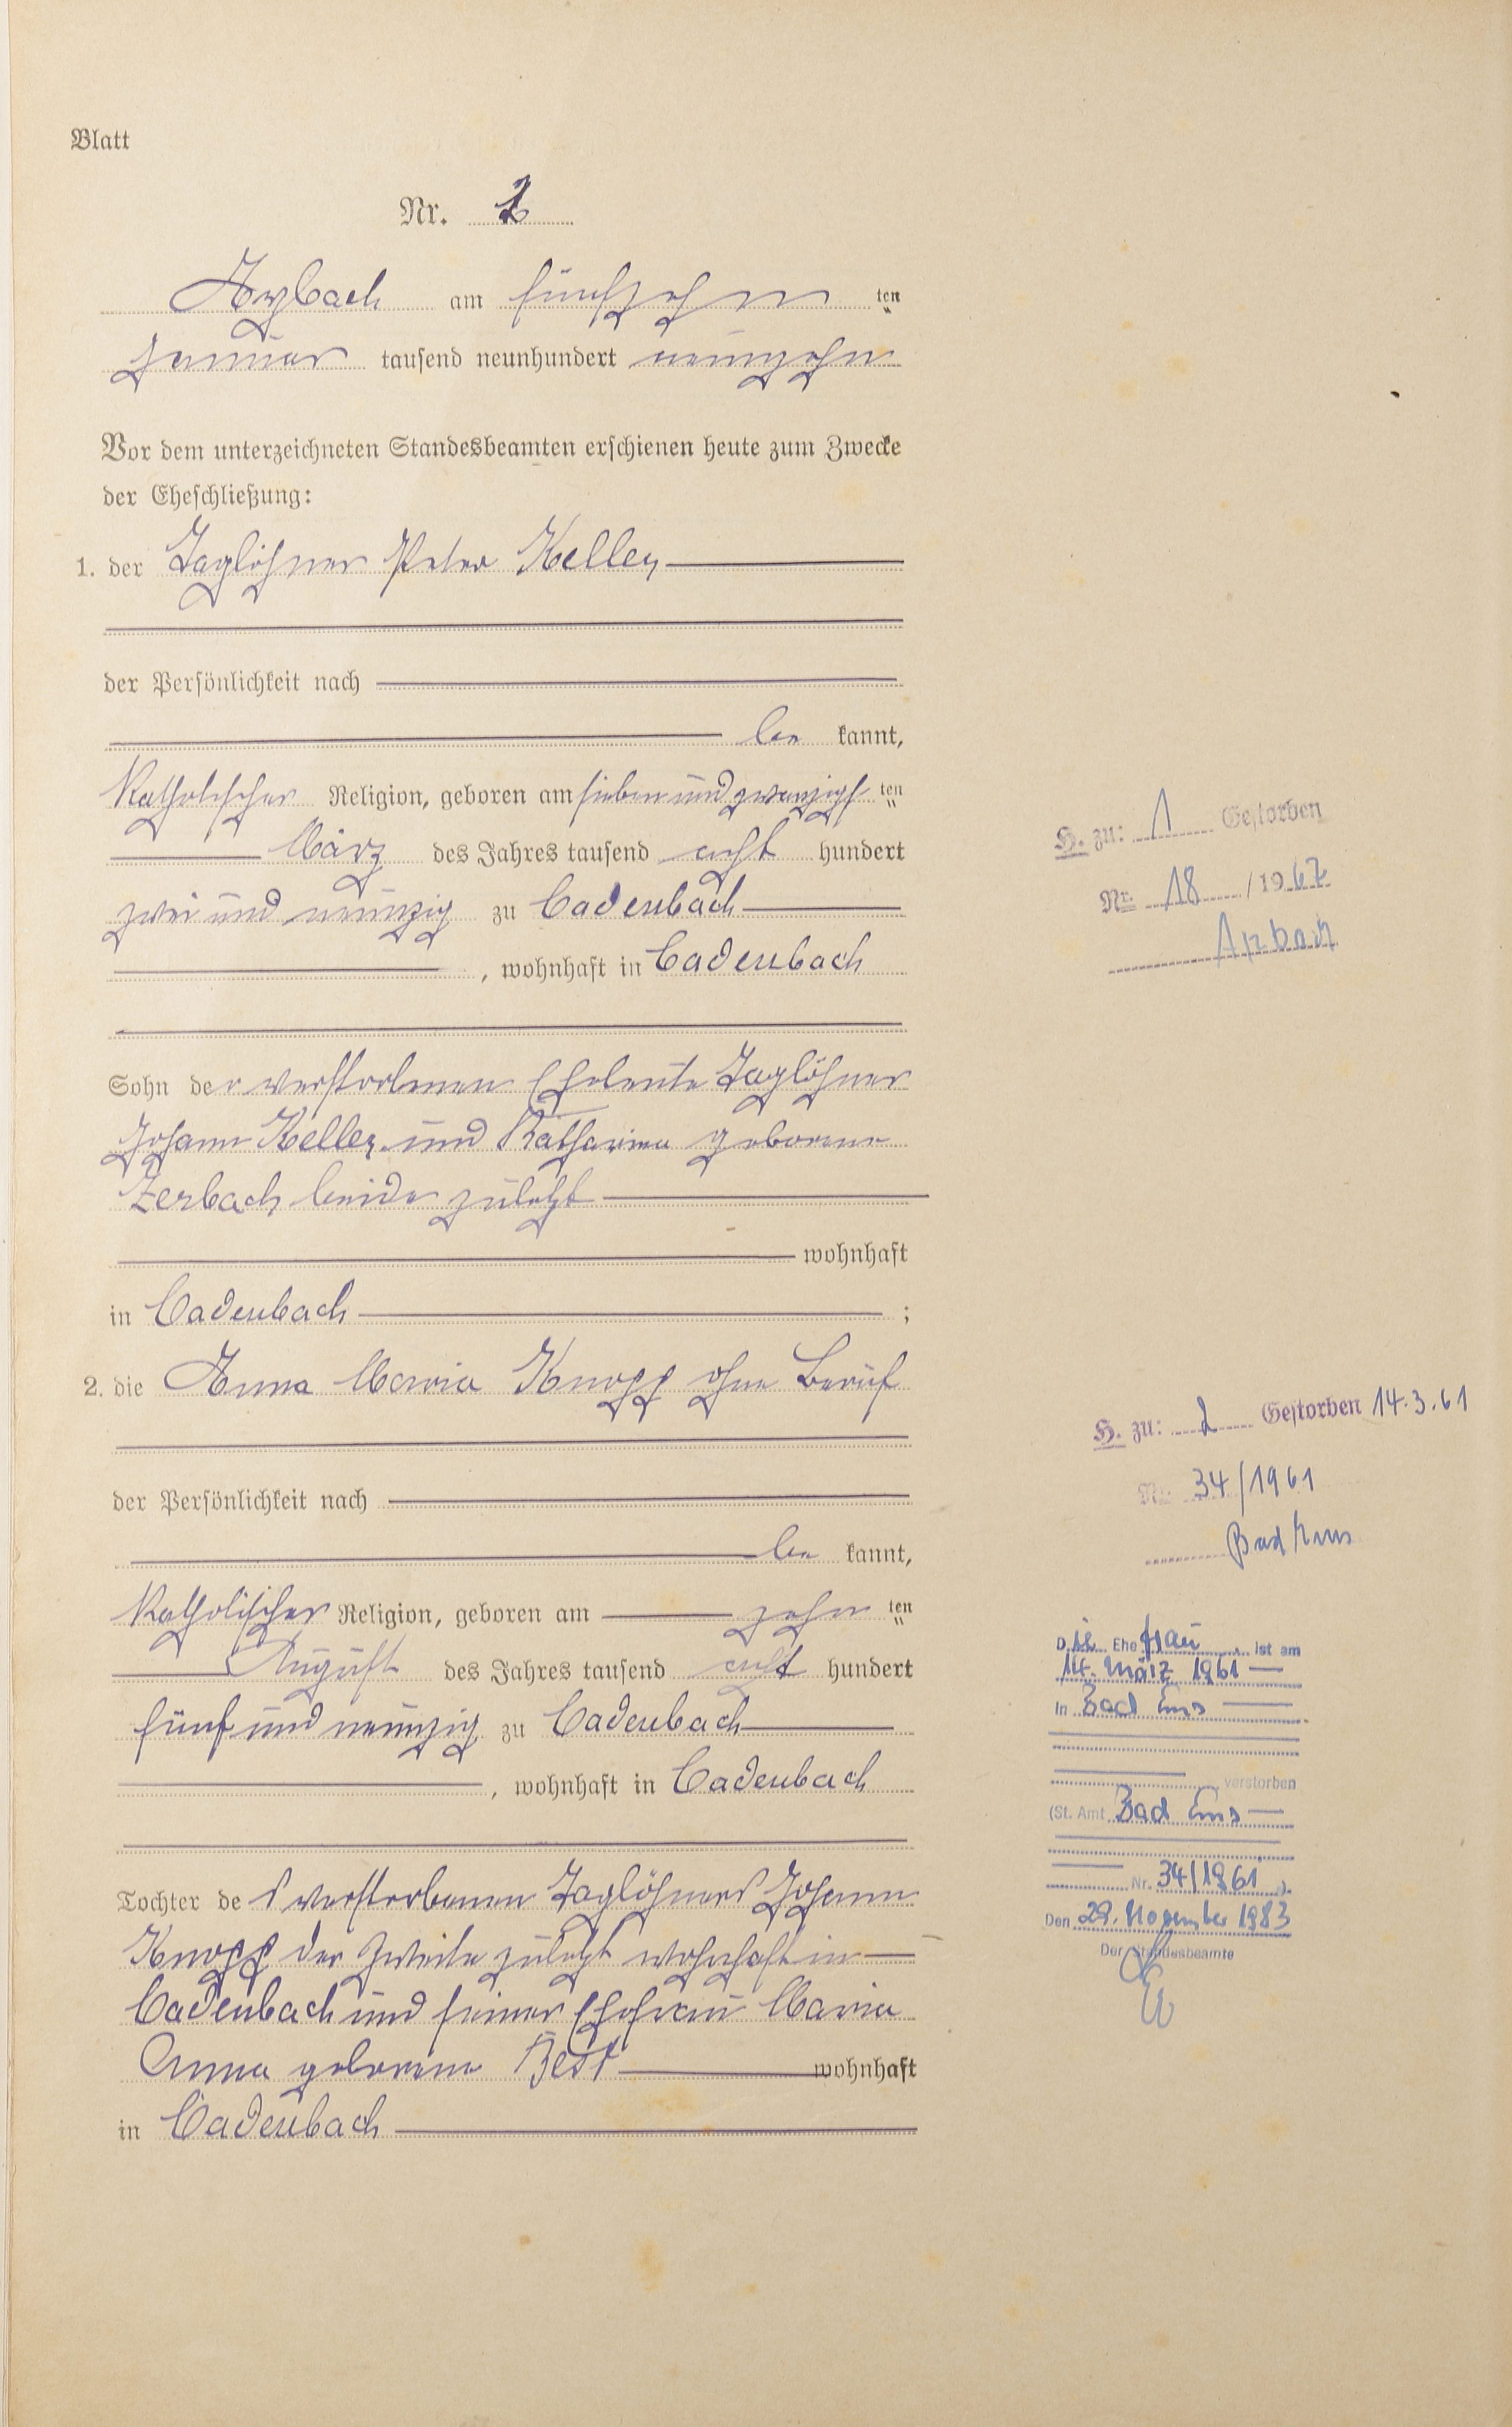 Blatt
Nr. 2
Arzbach am fünfzehn ten
Januar tausend neunhundert neunzehn
Vor dem unterzeichneten Standesbeamten erschienen heute zum Zwecke
der Eheschließung:
1. der Taglöhner Peter Keller
der Persönlichkeit nach
be kannt,
Katholischer Religion, geboren am sieben und zwanzigs ten
März des Jahres tausend acht hundert
zwei und neunzig zu Cadenbach
, wohnhaft in Cadenbach
Sohn der verstorbenen Eheleute Taglöhner
Johann Keller und Katharina geborene
Zerbach beide zuletzt
wohnhaft
in Cadenbach ;
2. die Anna Maria Knopp ohne Beruf
der Persönlichkeit nach
be kannt,
Katholischer Religion, geboren am zehn ten
August des Jahres tausend acht hundert
fünf und neunzig zu Cadenbach
, wohnhaft in Cadenbach
Tochter des verstorbenen Taglöhners Johann
Knopp der Zweite zuletzt wohnhaft in
Cadenbach und seiner Ehefrau Maria
Anna geborene Best wohnhaft
in Cadenbach
H. zu: 1 Gestorben
Nr. 18 /1967
Arzbach
H. zu: 2 Gestorben 14.3.61
Nr. 34/1961
Bad Ems
Die Ehefrau ist am
14. März 1961
in Bad Ems
verstorben
(St. Amt Bad Ems
Nr. 34/1961 ).
Den 29. November 1983
Der Standesbeamte